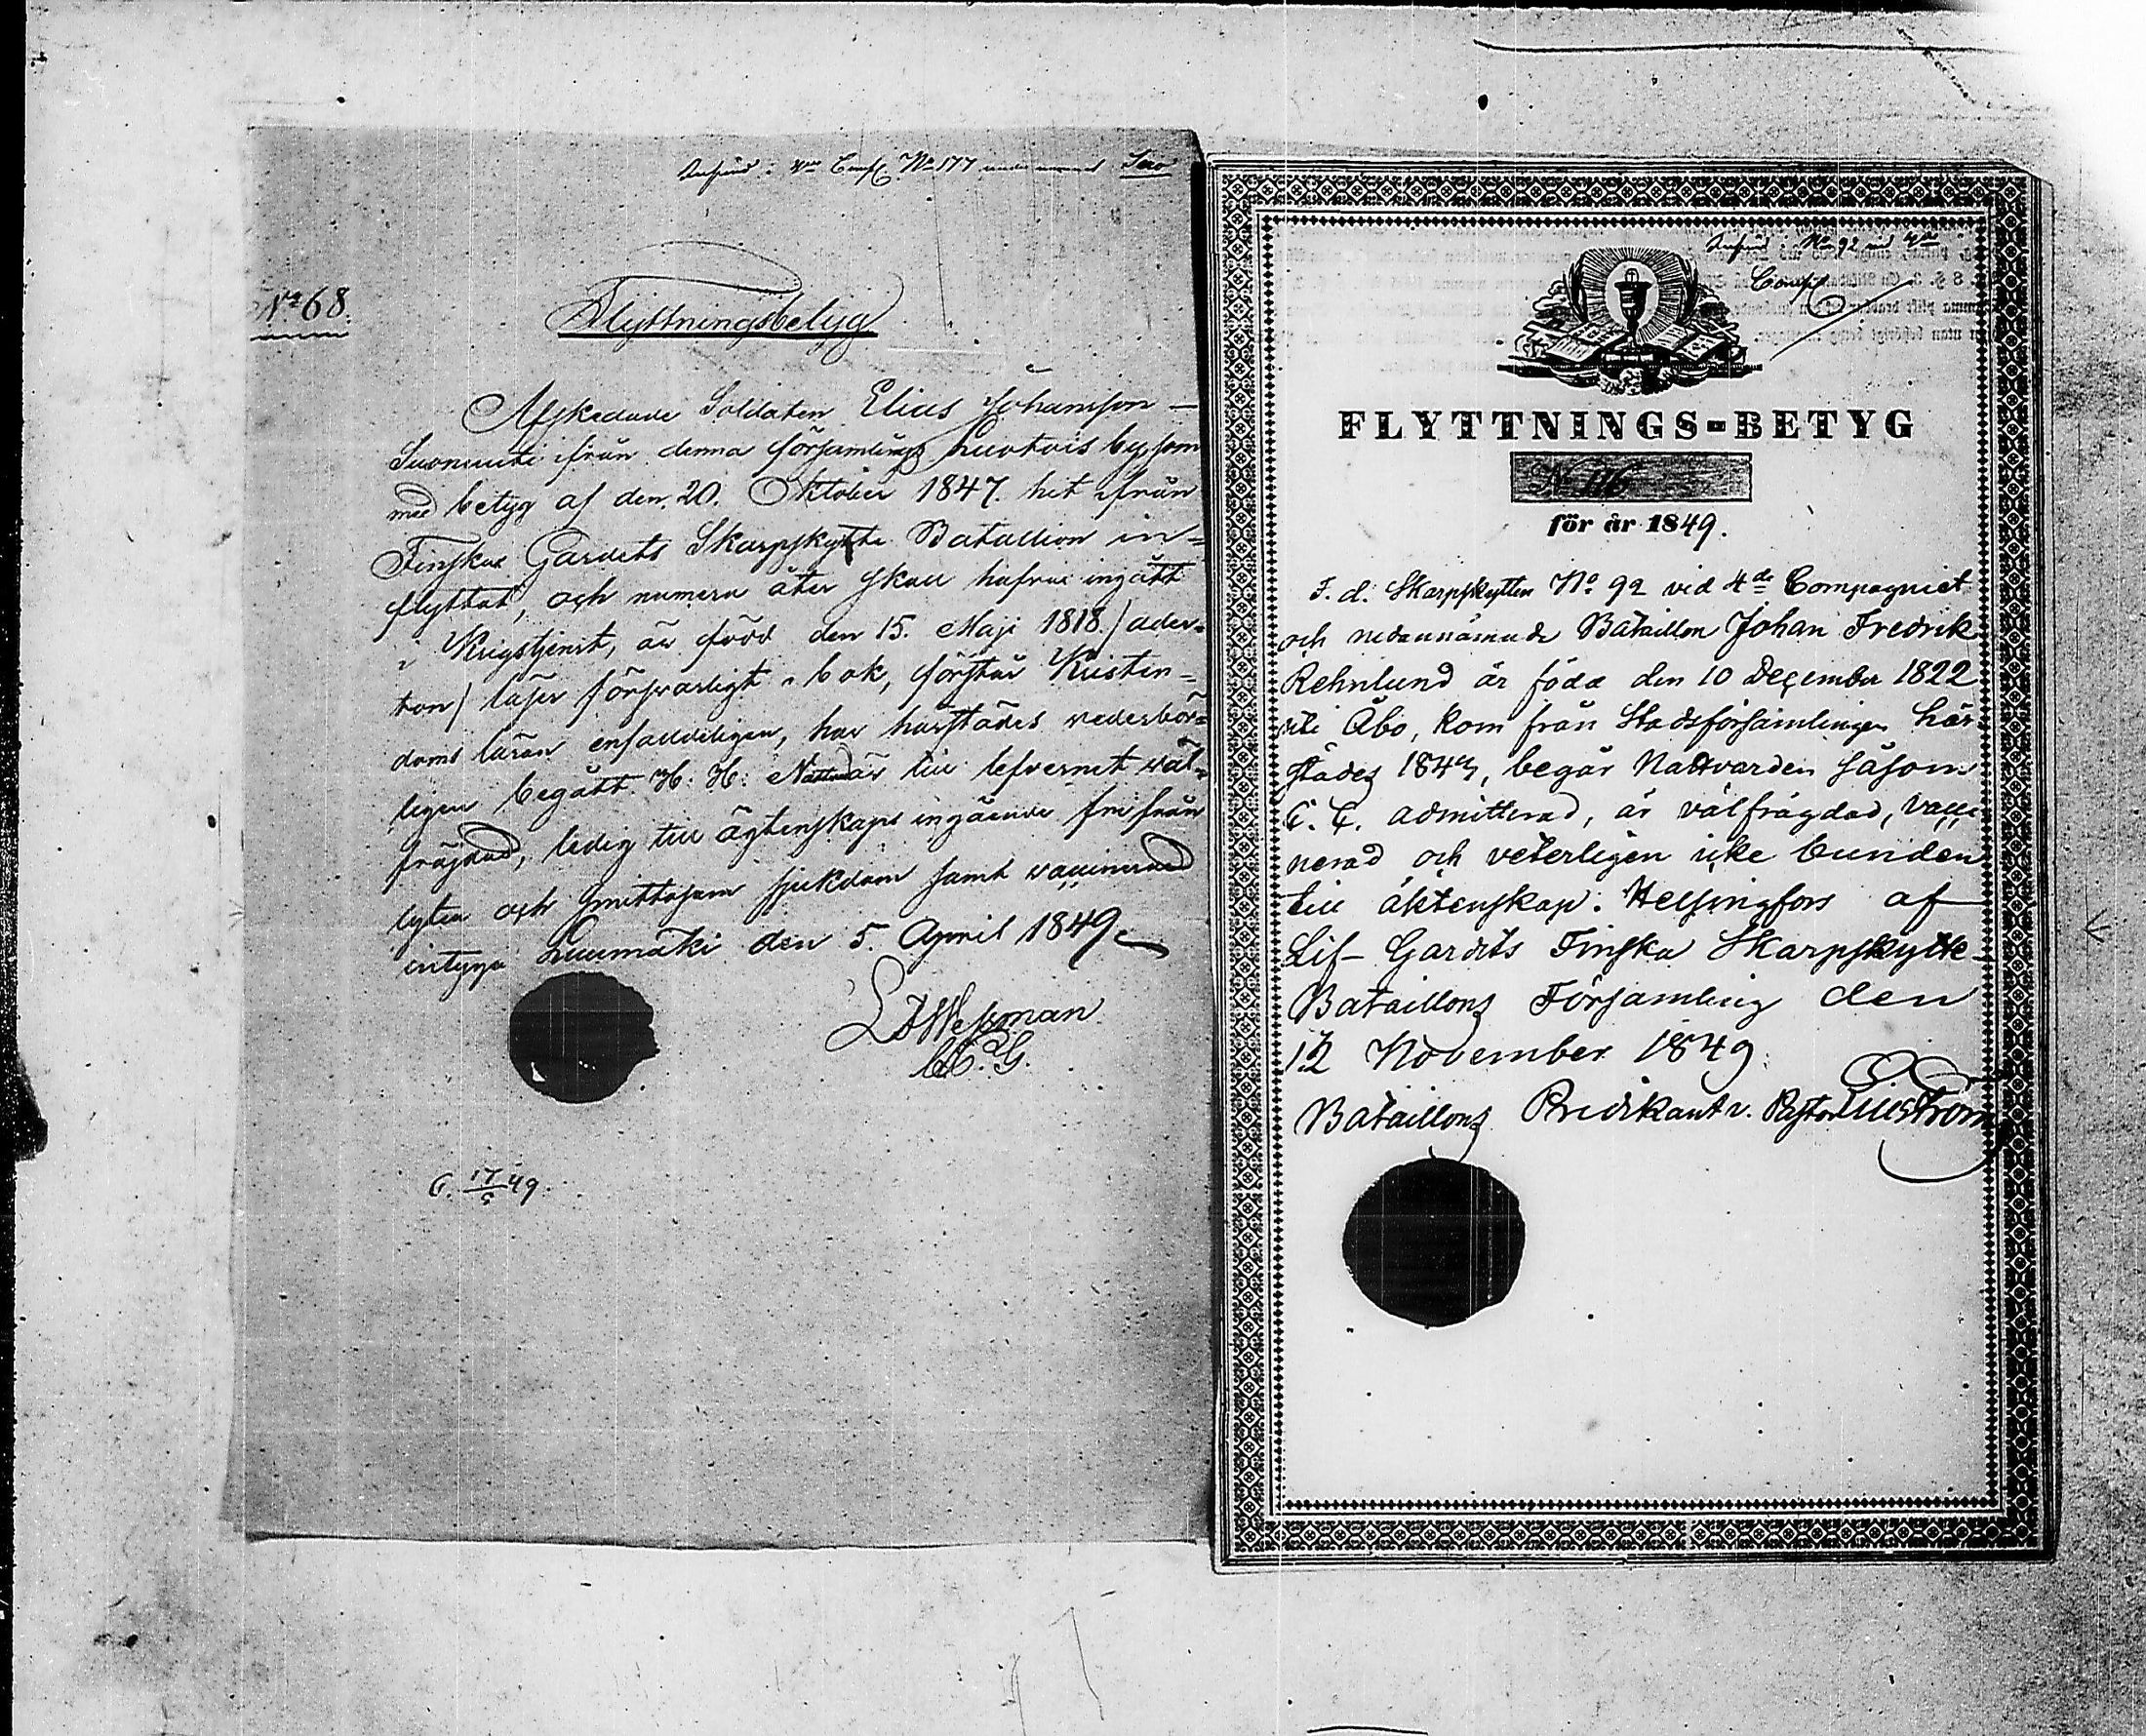 Införd i 4de Comp. No 177 under namnet Suo
No 68.
Flyttningsbetyg
Afskedade Soldaten Elias Johansson
Suonenite ifrån denna församlings by, som
med betyg af den 20. Oktober 1847. hit ifrån
Finska Gardets Skarpskytte Batallion in=
flyttat, och numera åter skall hafva ingått
i Krigstjenst, är född den 15. Maji 1818. / ader=
ton / läser försvarligt i bok, förstår Kristen=
doms läran enfalldeligen, har härstädes vederbör=
ligen begått H. H. Nattvard är till lefvernet väl=
frajdad, ledig till ägtenskaps ingående fri från
lyten och smittosam sjukdom samt vaccinerad
intygar Luumäki den 5. April 1849.
Wessman
C. 17/5 49.
Införd i No 92 vid 4de
Comp.
FLYTTNINGS-BETYG
N 116
för år 1849.
F. d. Skarpskytten No 92 vid 4de Compagniet
och nedannämnde Bataillon Johan Fredrik
Rehnlund är född den 10 December 1822
uti Åbo, kom från Stadsförsamlingen här
städes 1843, begår Nattvarden såsom
C. C. admitterad, är välfrägdad, vacci
nerad och veterligen icke bunden
till äktenskap. Helsingfors af
Lif-Gardets Finska Skarpskytte-
Bataillons Församling den
12 November 1849.
Bataillons Predikant v. Pastor